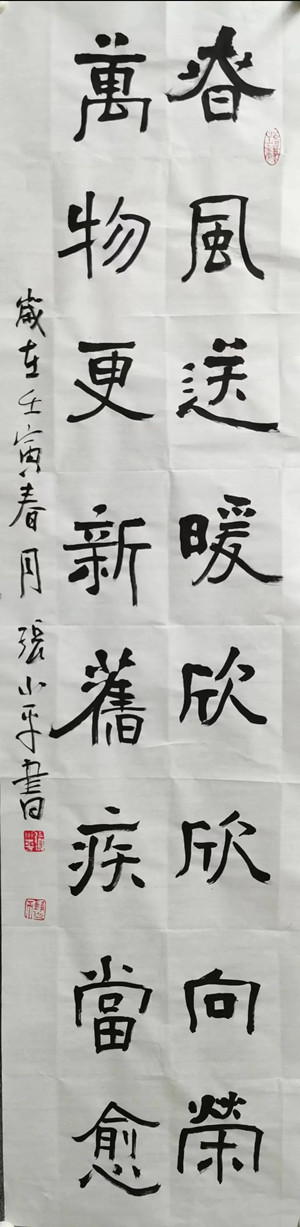 春風送暖欣欣向榮
萬物更新舊疾當愈
歲在壬寅春月張小平書